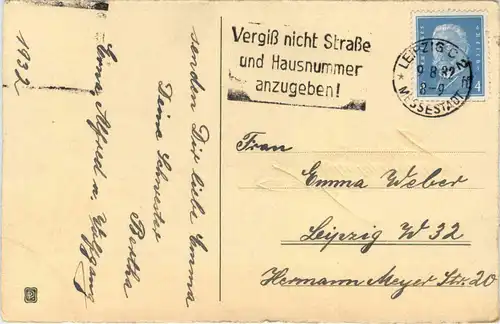 senden Dir liebe Emma
Deine Schwester
Bertha
Erna, Alfred u. Wolfgang
1932
Vergiß nicht Straße
und Hausnummer
anzugeben!
LEIPZIG C 2
MESSESTADT
4
Frau
Emma Weber
Leipzig W 32
Hermann Meyer Str. 20